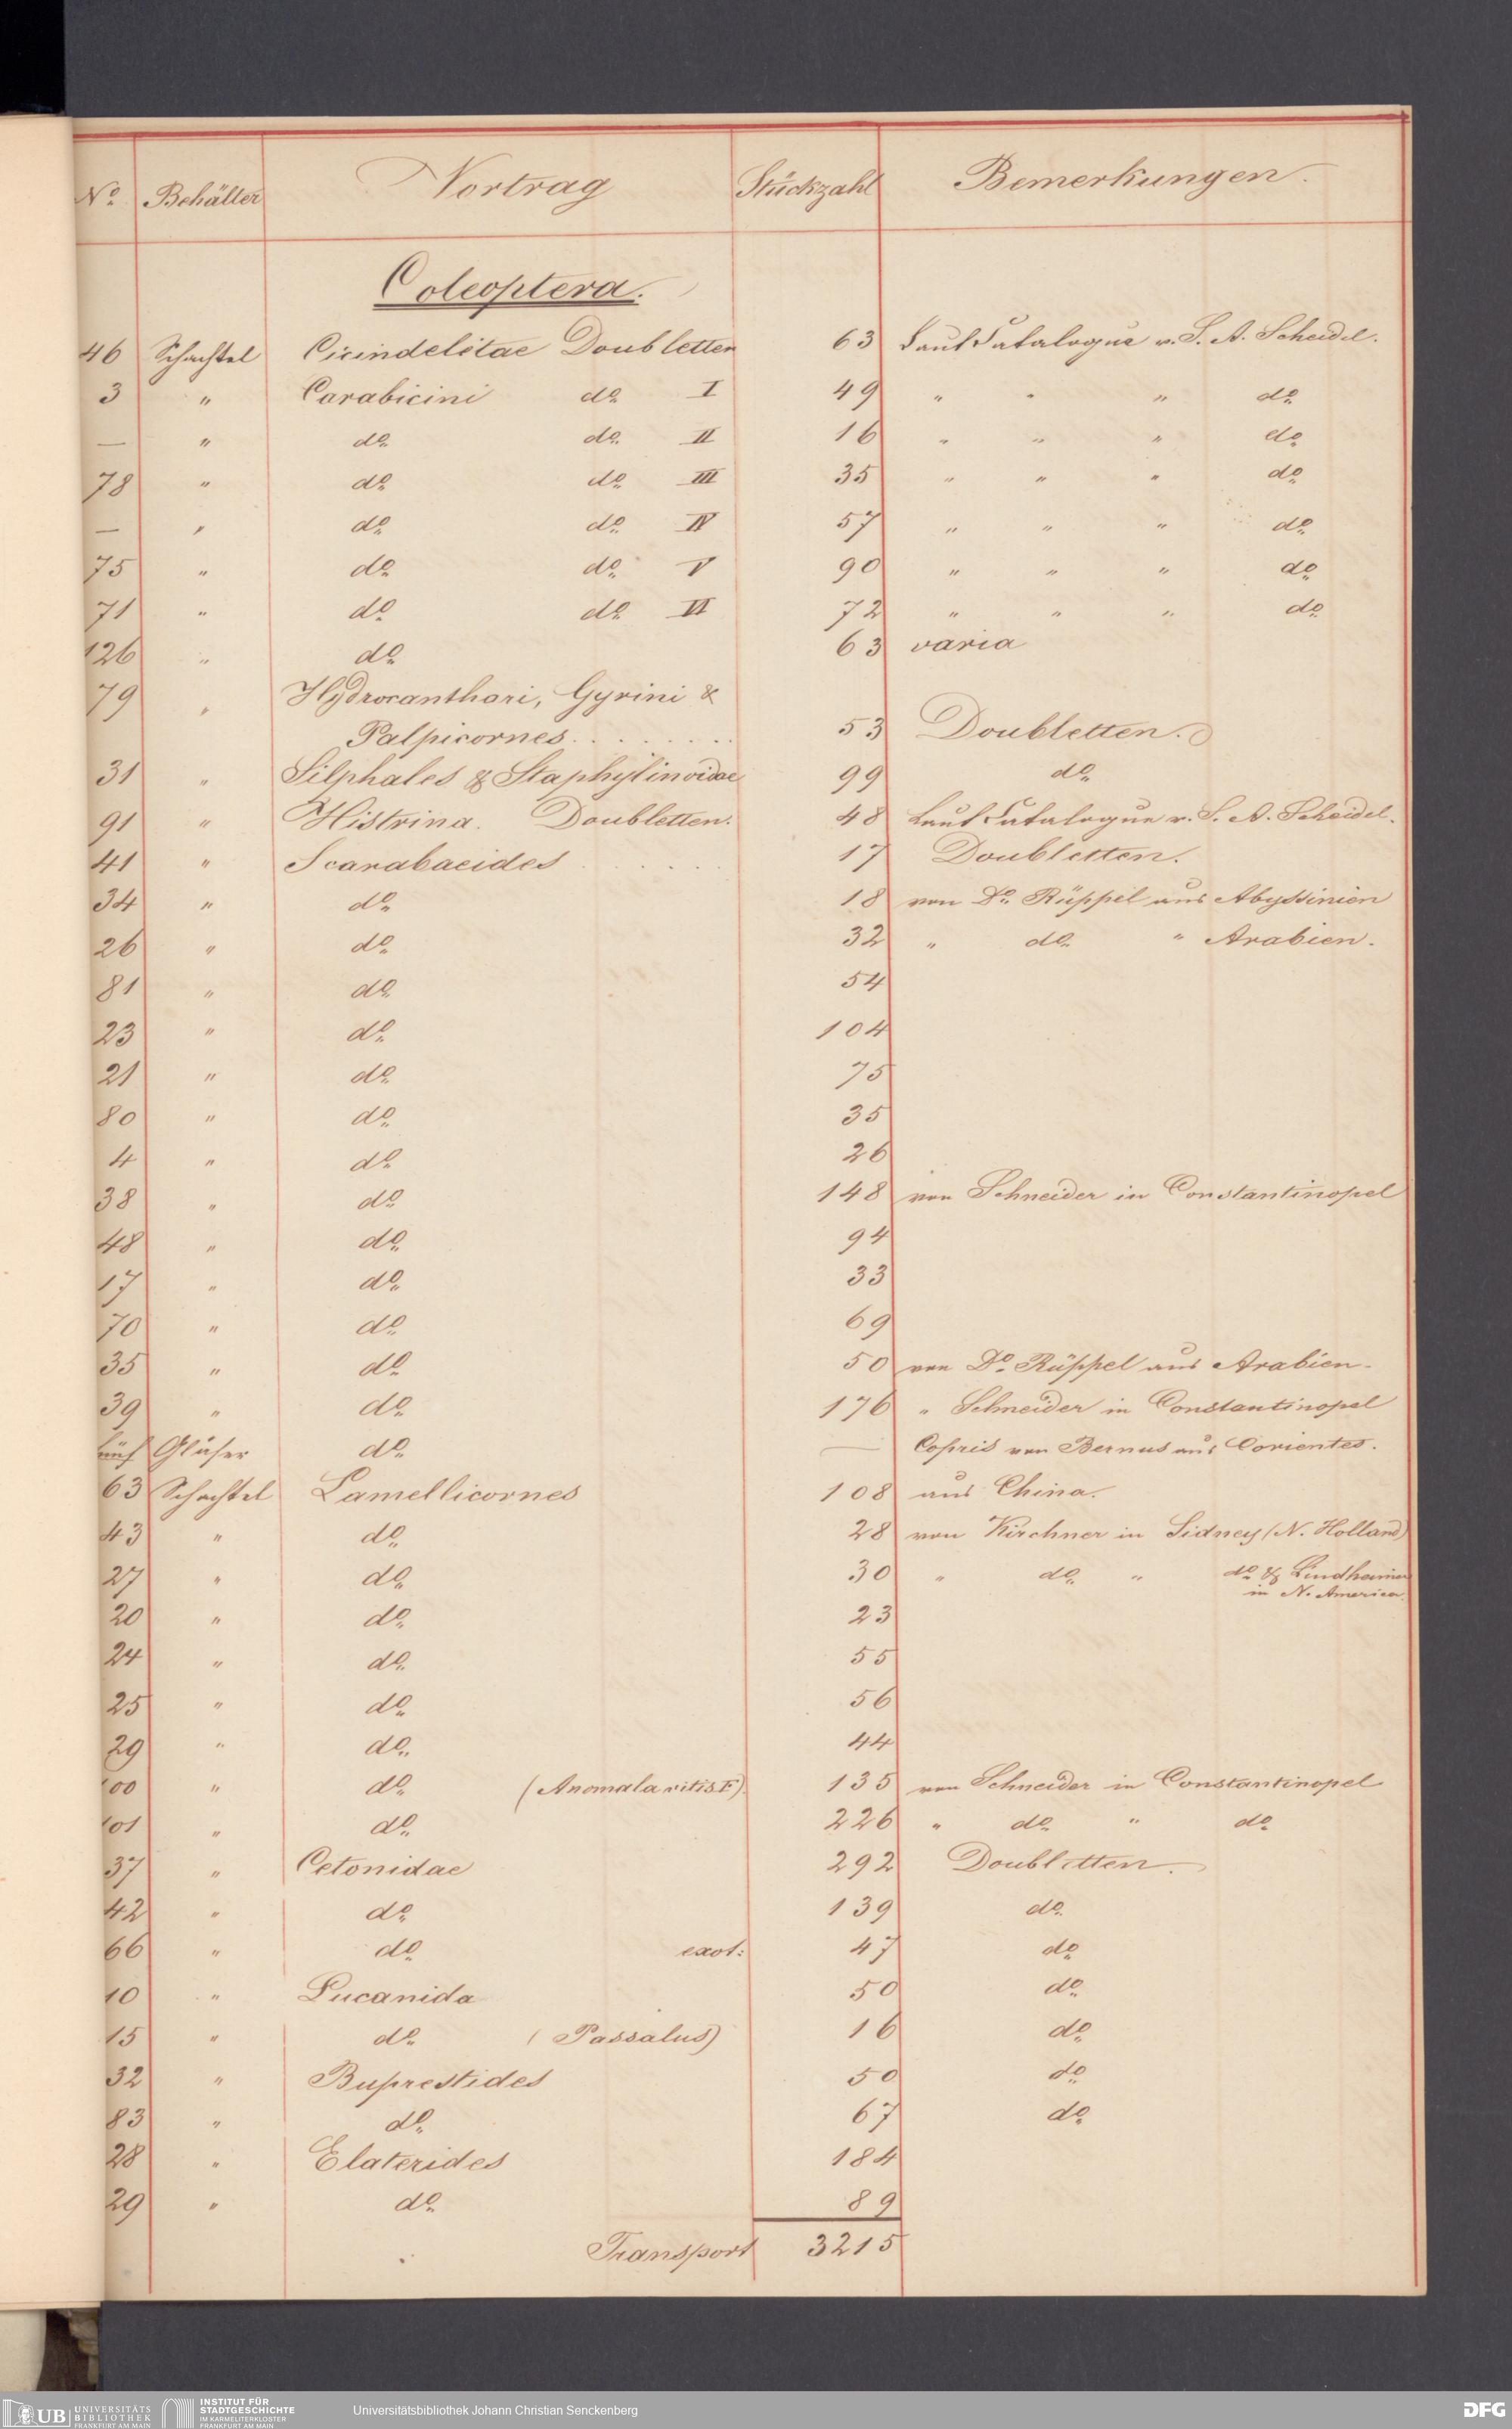 No. Behälter Vortrag Stückzahl Bemerkungen.
Coleoptera.
46 Schachtel Cicindelitae Doubletten 63 Laut Catalogue v. S. A. Scheidel.
3 " Carabicini do. I 49 " " " do.
— " do. do. II 16 " " " do.
78 " do. do. III 35 " " " do.
— " do. do. IV 57 " " " do.
75 " do. do. V 90 " " " do.
71 " do. do. VI 72 " " " do.
126 " do. 63 varia
79 " Hydrocanthari, Gyrini &
Palpicornes . . . . . . . 53 Doubletten.
31 " Silphales & Staphylinoidae 99 do.
91 " Histrina. Doubletten. 48 Laut Catalogue v. S. A. Scheidel.
41 " Scarabaeides . . . . . 17 Doubletten.
34 " do. 18 von Dr. Rüppel aus Abyssinien
26 " do. 32 " do. " Arabien.
81 " do. 54
23 " do. 104
21 " do. 75
80 " do. 35
4 " do. 26
38 " do. 148 von Schneider in Constantinopel
48 " do. 94
17 " do. 33
70 " do. 69
35 " do. 50 von Dr. Rüppel aus Arabien.
39 " do. 176 " Schneider in Constantinopel
fünf Gläser do. — Copris von Bernus aus Corientes.
63 Schachtel Lamellicornes 108 aus China.
43 " do. 28 von Kirchner in Sidney (N. Holland)
27 " do. 30 " do. " do. & Lindheimer
in N. America.
20 " do. 23
24 " do. 55
25 " do. 56
29 " do. 44
100 " do. (Anomala vitis F.) 135 von Schneider in Constantinopel
101 " do. 226 " do. " do.
37 " Cetonidae 292 Doubletten.
42 " do. 139 do.
66 " do. exot: 47 do.
10 " Lucanida 50 do.
15 " do. (Passalus) 16 do.
32 " Buprestides 50 do.
83 " do. 67 do.
28 " Elaterides 184
29 " do. 89
Transport 3215
UB UNIVERSITÄTS BIBLIOTHEK FRANKFURT AM MAIN
INSTITUT FÜR STADTGESCHICHTE IM KARMELITERKLOSTER FRANKFURT AM MAIN
Universitätsbibliothek Johann Christian Senckenberg
DFG